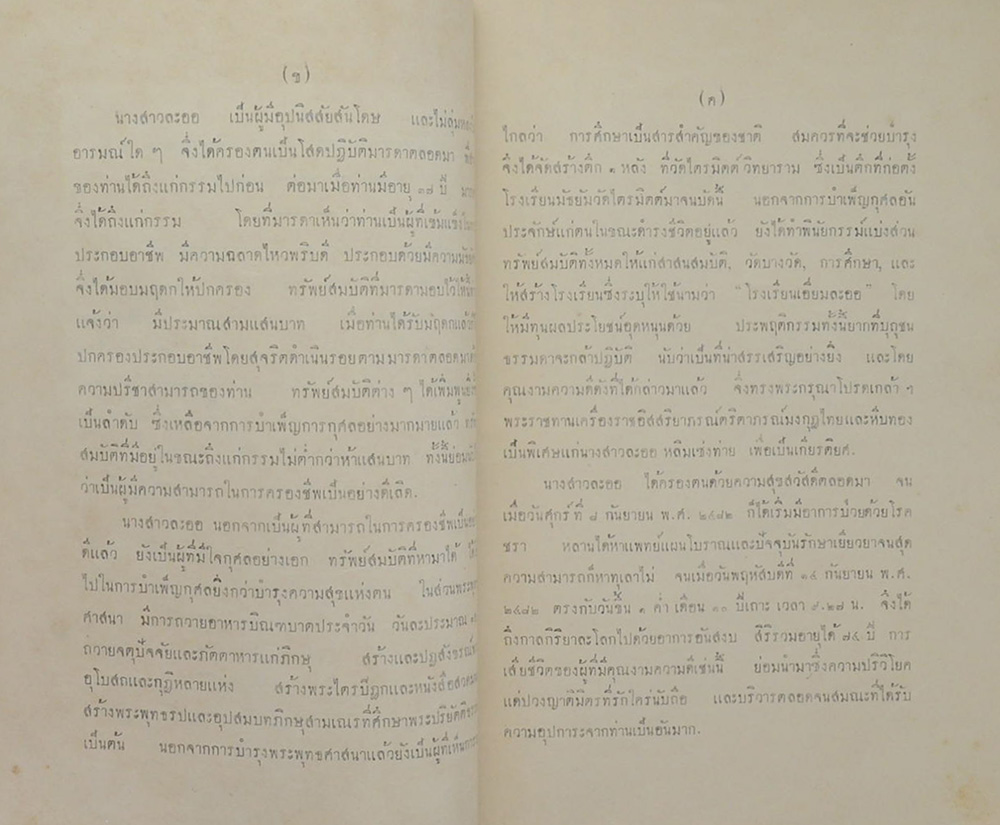 (ข)
นางสาวละออ เป็นผู้มีอุปนิสสัยสันโดษ และไม่ลุ่ม
อารมณ์ใด ๆ จึ่งได้ครองตนเป็นโสดปฏิบัติมารดาตลอดมา
ของท่านได้ถึงแก่กรรมไปก่อน ต่อมาเมื่อท่านมีอายุ ๓๗ ปี
จึ่งได้ถึงแก่กรรม โดยที่มารดาเห็นว่าท่านเป็นผู้ที่เข้มแข็ง
ประกอบอาชีพ มีความฉลาดไหวพริบดี ประกอบด้วยมีความ
จึ่งได้มอบมฤดกให้ปกครอง ทรัพย์สมบัติที่มารดามอบไว้ให้
แจ้งว่า มีประมาณสามแสนบาท เมื่อท่านได้รับมฤดกแล้ว
ปกครองประกอบอาชีพโดยสุจริตดำเนินรอยตามมารดาตลอดมา
ความปรีชาสามารถของท่าน ทรัพย์สมบัติต่าง ๆ ได้เพิ่มพูน
เป็นลำดับ ซึ่งเหลือจากการบำเพ็ญการกุศลอย่างมากมายแล้ว
สมบัติที่มีอยู่ในขณะถึงแก่กรรมไม่ต่ำกว่าห้าแสนบาท ทั้งนี้ย่อม
ว่าเป็นผู้มีความสามารถในการครองชีพเป็นอย่างดีเลิด.
นางสาวละออ นอกจากเป็นผู้ที่สามารถในการครองชีพเป็น
ดีแล้ว ยังเป็นผู้ที่มีใจกุศลอย่างเอก ทรัพย์สมบัติที่หามาได้
ไปในการบำเพ็ญกุศลยิ่งกว่าบำรุงความสุขแห่งตน ในส่วนพระ
ศาสนา มีการถวายอาหารบิณฑบาตประจำวัน วันละประมาณ
ถวายจตุปัจจัยและภัตตาหารแก่ภิกษุ สร้างและปฏิสังขรณ์
อุโบสถและกุฏิหลายแห่ง สร้างพระไตรปิฎกและหนังสือสวด
สร้างพระพุทธรูปและอุปสมบทภิกษุสามเณรที่ศึกษาพระปริยัติ
เป็นต้น นอกจากการบำรุงพระพุทธศาสนาแล้วยังเป็นผู้ที่เห็นการ
(ค)
ไกลว่า การศึกษาเป็นสารสำคัญของชาติ สมควรที่จะช่วยบำรุง
จึ่งได้จัดสร้างตึก ๑ หลัง ที่วัดไตรมิตต์วิทยาราม ซึ่งเป็นตึกที่ก่อตั้ง
โรงเรียนมัธยมวัดไตรมิตต์มาจนบัดนี้ นอกจากการบำเพ็ญกุศลอัน
ประจักษ์แก่ตนในขณะดำรงชีวิตอยู่แล้ว ยังได้ทำพินัยกรรมแบ่งส่วน
ทรัพย์สมบัติทั้งหมดให้แก่ศาสนสมบัติ, วัดบางวัด, การศึกษา, และ
ให้สร้างโรงเรียนซึ่งระบุให้ใช้นามว่า "โรงเรียนเอี่ยมละออ" โดย
ให้มีทุนผลประโยชน์อุดหนุนด้วย ประพฤติกรรมทั้งนี้ยากที่บุถุชน
ธรรมดาจะกล้าปฏิบัติ นับว่าเป็นที่น่าสรรเสริญอย่างยิ่ง และโดย
คุณงามความดีดังที่ได้กล่าวมาแล้ว จึ่งทรงพระกรุณาโปรดเกล้า ฯ
พระราชทานเครื่องราชอิสสริยาภรณ์ตริตาภรณ์มงกุฎไทยและหีบทอง
เป็นพิเศษแก่นางสาวละออ หลิมเซ่งท่าย เพื่อเป็นเกียรติยศ.
นางสาวละออ ได้ครองตนด้วยความสุขสวัสดีตลอดมา จน
เมื่อวันศุกร์ที่ ๘ กันยายน พ.ศ. ๒๔๘๒ ก็ได้เริ่มมีอาการป่วยด้วยโรค
ชรา หลานได้หาแพทย์แผนโบราณและปัจจุบันรักษาเยียวยาจนสุด
ความสามารถก็หาทุเลาไม่ จนเมื่อวันพฤหัสบดีที่ ๑๔ กันยายน พ.ศ.
๒๔๘๒ ตรงกับวันขึ้น ๑ ค่ำ เดือน ๑๐ ปีเถาะ เวลา ๙.๒๗ น. จึ่งได้
ถึงกาลกิริยาละโลกไปด้วยอาการอันสงบ สิริรวมอายุได้ ๗๔ ปี การ
เสียชีวิตของผู้ที่มีคุณงามความดีเช่นนี้ ย่อมนำมาซึ่งความปริวิโยค
แด่ปวงญาติมิตรที่รักใคร่นับถือ และบริวารตลอดจนสมณะที่ได้รับ
ความอุปการะจากท่านเป็นอันมาก.